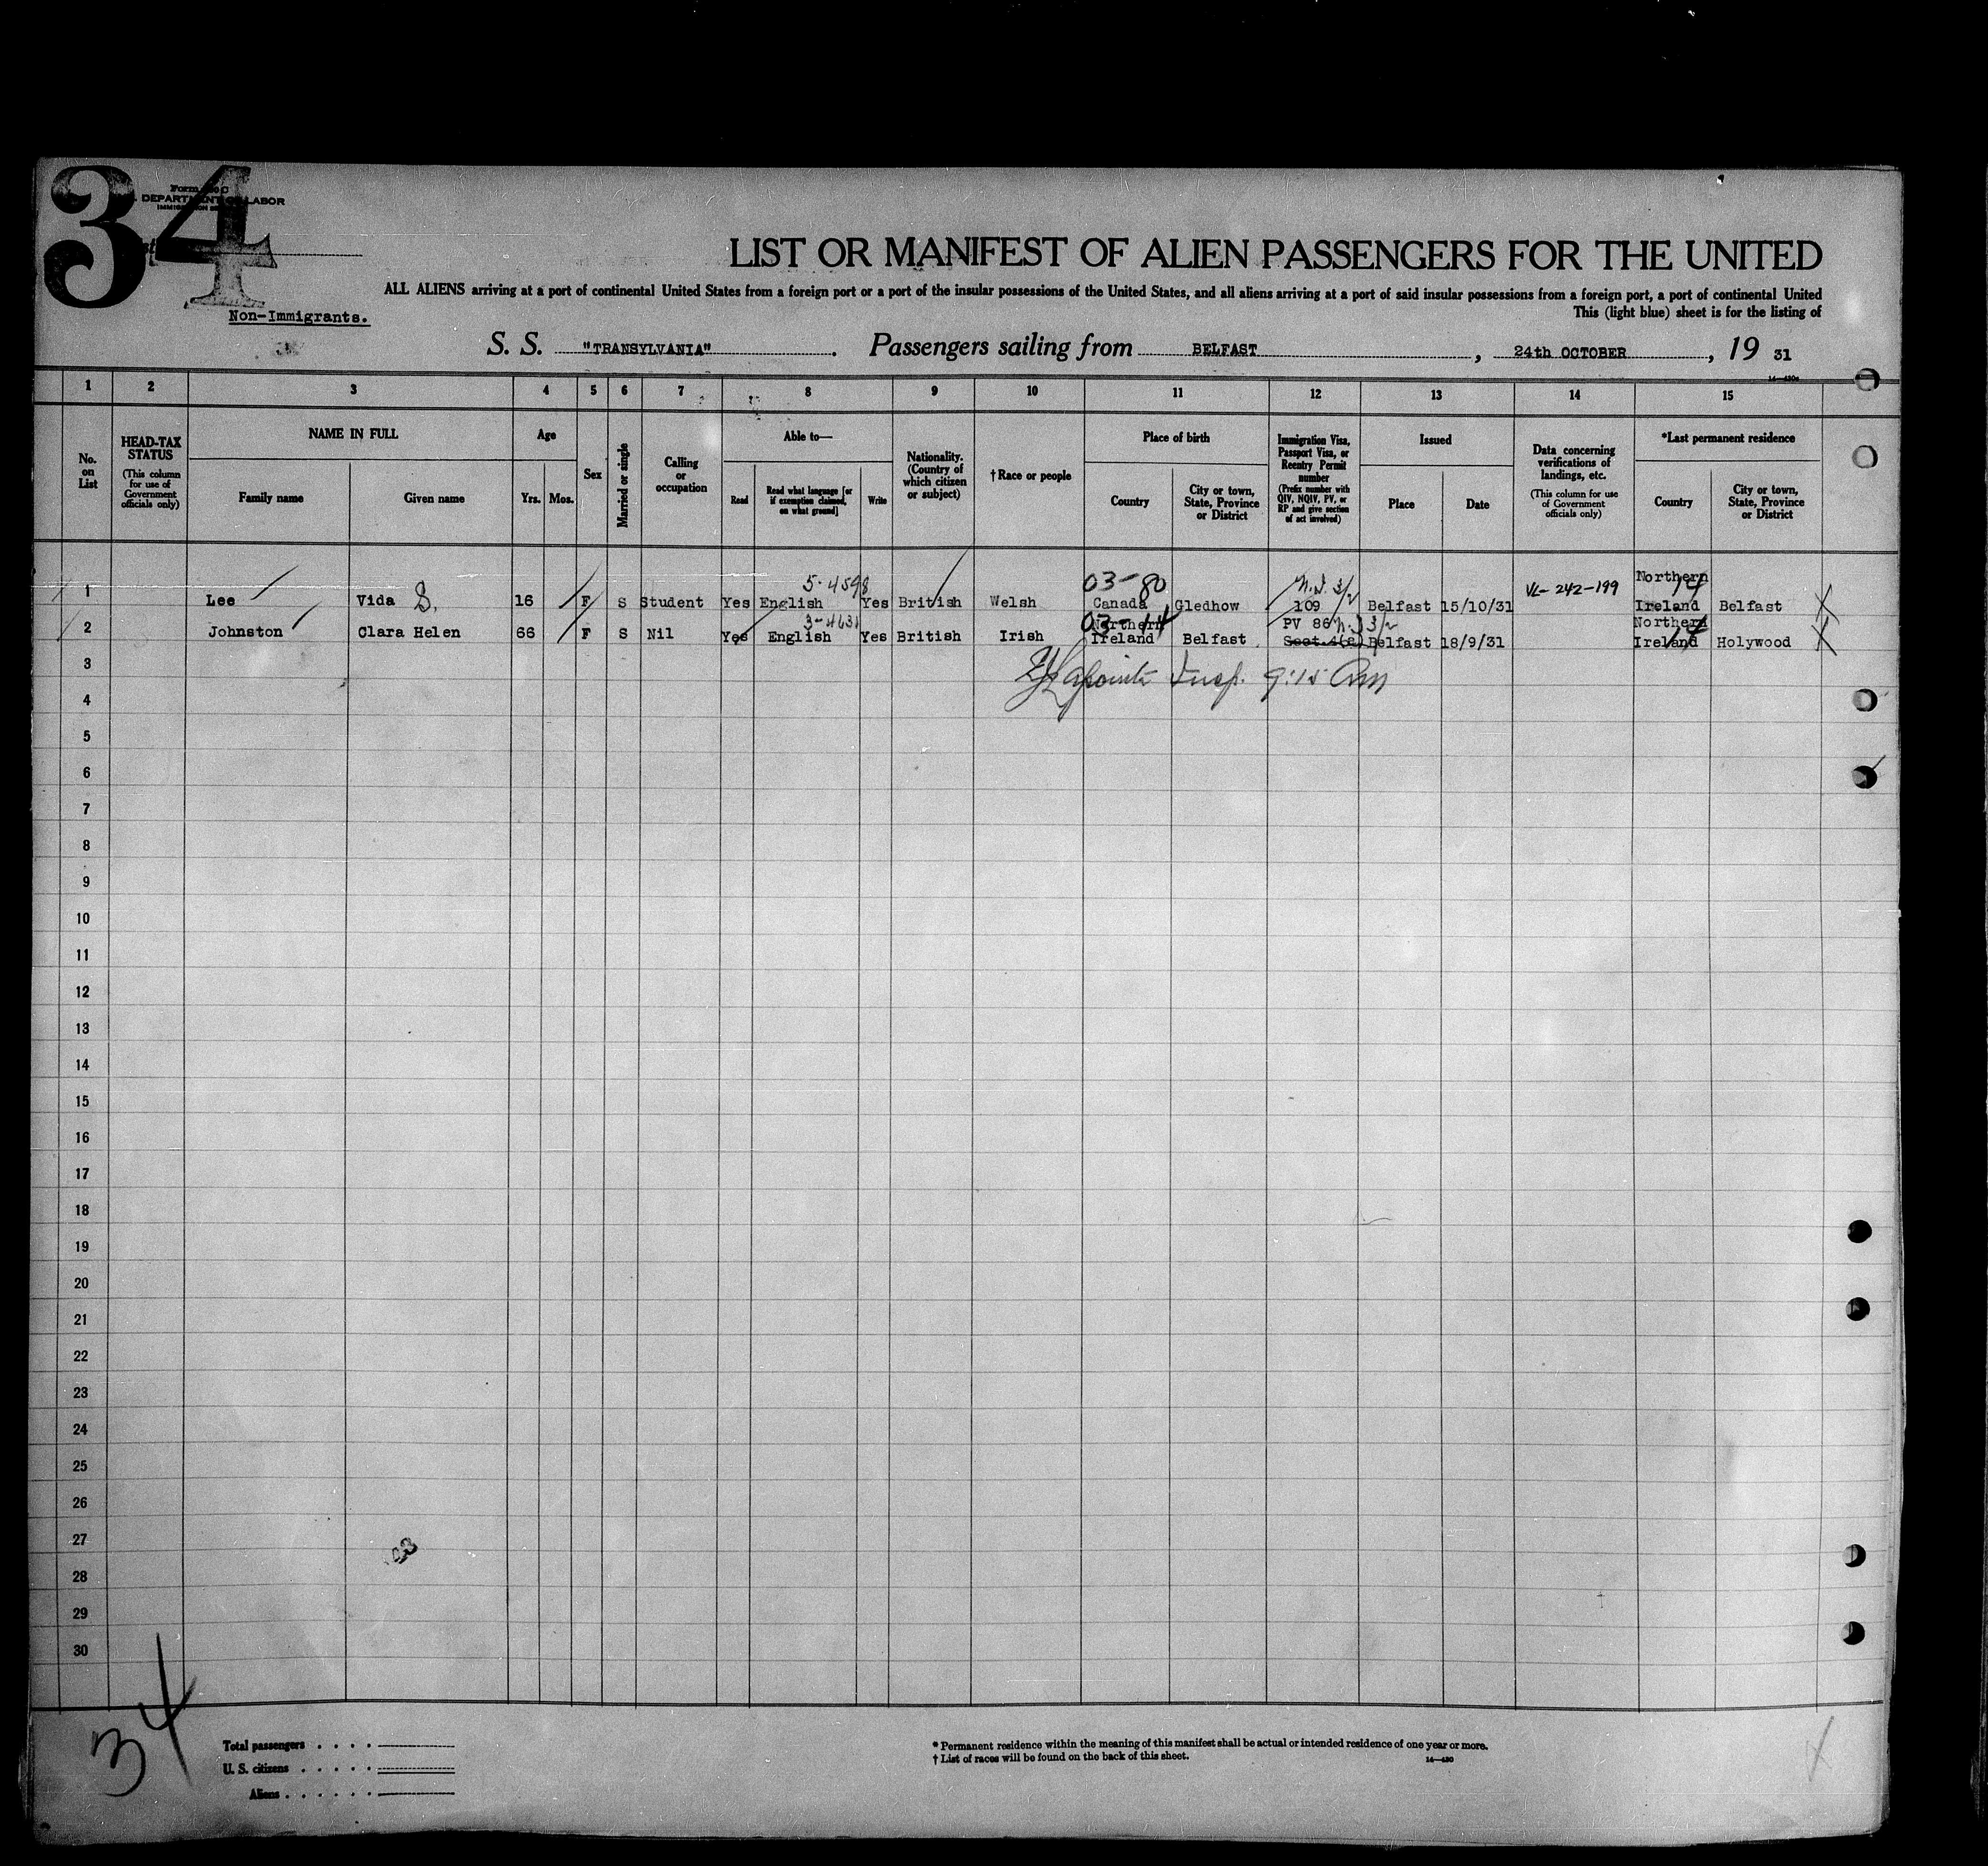 34
Form 500 C
DEPARTMENT OF LABOR
LIST OR MANIFEST OF ALIEN PASSENGERS FOR THE UNITED
ALL ALIENS arriving at a port of continental United States from a foreign port or a port of the insular possessions of the United States, and all aliens arriving at a port of said insular possessions from a foreign port, a port of continental United
This (light blue) sheet is for the listing of
Non-Immigrants.
S. S. "TRANSYLVANIA". Passengers sailing from BELFAST, 24th OCTOBER, 19 31
1 2 3 4 5 6 7 8 9 10 11 12 13 14 15
No. on List
HEAD-TAX STATUS
(This column for use of Government officials only)
NAME IN FULL
Family name
Given name
Age
Yrs.
Mos.
Sex
Married or single
Calling or occupation
Able to—
Read
Read what language [or if exemption claimed, on what ground]
Write
Nationality. (Country of which citizen or subject)
† Race or people
Place of birth
Country
City or town, State, Province or District
Immigration Visa, Passport Visa, or Reentry Permit number
(Prefix number with QIV, NQIV, PV, or RP and give section of act involved)
Issued
Place
Date
Data concerning verifications of landings, etc.
(This column for use of Government officials only)
*Last permanent residence
Country
City or town, State, Province or District
5-4598 03-80 N.I. 3/2 VL-242-199 Northern 14
1 Lee Vida S. 16 F S Student Yes English Yes British Welsh Canada Gledhow 109 Belfast 15/10/31 Ireland Belfast X
3-4631 Northern 03-14 PV 86 3/2 Northern 14
2 Johnston Clara Helen 66 F S Nil Yes English Yes British Irish Ireland Belfast Sect. Belfast 18/9/31 Ireland Holywood X
3
Lapointe Insp. 9:15 Am
4
5
6
7
8
9
10
11
12
13
14
15
16
17
18
19
20
21
22
23
24
25
26
27
28
29
30
34
Total passengers . . . .
U. S. citizens . . . . .
Aliens . . . . . .
* Permanent residence within the meaning of this manifest shall be actual or intended residence of one year or more.
† List of races will be found on the back of this sheet.
14—430
X